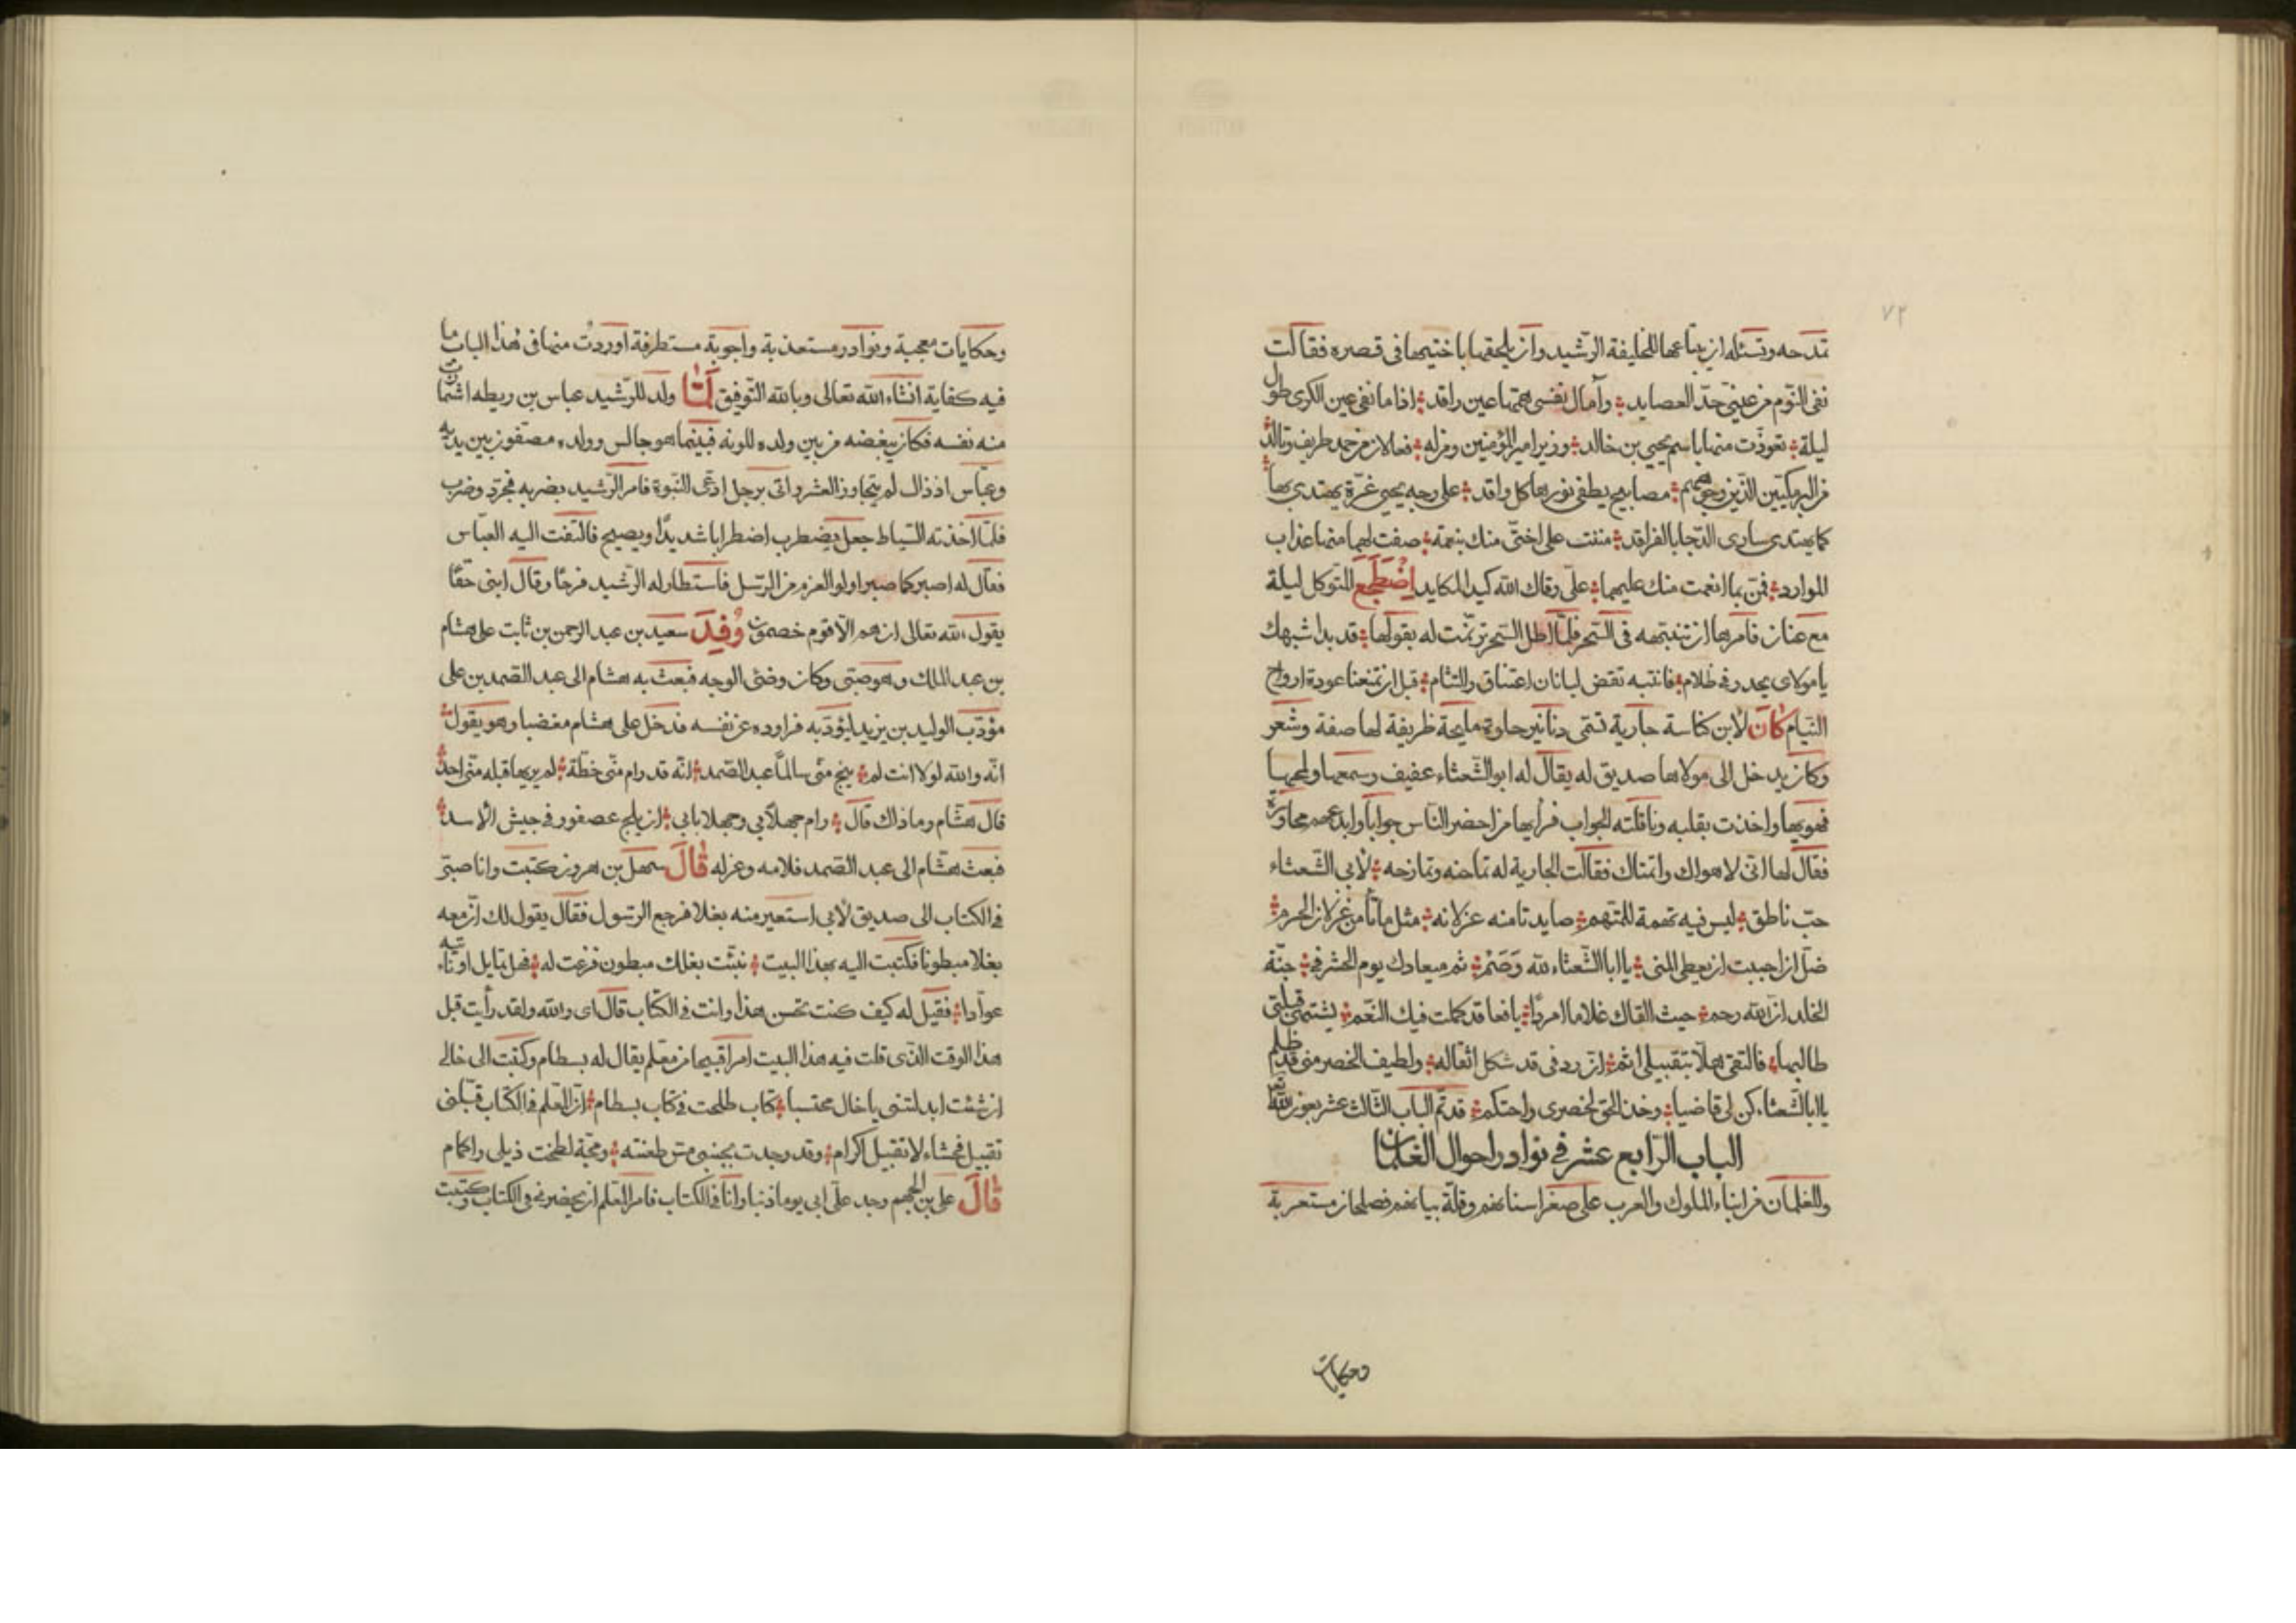 ٧٢
تمدحه وتسئله ان يبتاعها للخليفة الرشيد وان يلحقها باختيها فى قصره فقالت
نفى النوم من عينى حد القصايد وآمال نفسى همها عين راقد اذا ما نفى عين الكرى طول
ليلة تعوذت منها باسم يحيى بن خالد وزير امير المؤمنين ومن له فعالان من حمد طريف وتالد
من البرمكيين الذين وجوههم مصابيح يطفى نورها كل واقد على وجه يحيى غرة يهتدى بها
كما يهتدى سارى الدجا بالفراقد مننت على اختى منك بنعمة صفت لهما منها عذاب
الموارد فمن بما انعمت منك عليهما على وقاك الله كيد المكايد اضطجع المتوكل ليلة
مع عنان فامرها ان تنبهه فى السحر فلما اطل السحر ترنمت له بقولها قد بدا شبهك
يا مولاى يحدر فى ظلام فانتبه نقض لبانات اعتناق والتثام قبل ان تمنعنا عودة ارواح
النيام كان لابن كناسة جارية تسمى دنانير حلوة مليحة ظريفة لها صفة وشعر
وكان يدخل الى مولاها صديق له يقال له ابو الشعثاء عفيف وسمعها ولمحها
فهويها واخذت بقلبه وناقلته الجواب فرأيها من احضر الناس جوابا وابدعهم محاورة
فقال لها انى لاهواك واتمناك فقالت الجارية له تماجنه وتمازحه لأبى الشعثاء
حب ناطق ليس فيه تهمة للمتهم صايد تامنه غزلانه مثل ما تأمن غزلان الحرم
صل ان احببت ان يعطى المنى يا ابا الشعثاء لله وصم ثم ميعادك يوم الحشر فى جنة
الخلد ان الله رحم حيث القاك غلاما امردا يافعا قد كملت فيك النعم يشتهى قبلتى
طالبها فالتقى هلا بتقبيلى أثم ان ردفى قد شكل اثقاله ولطيف الخصر منى قد ظلم
يا ابا الشعثاء كن لى قاضيا وخذ الحق لخصرى واحتكم قد تم الباب الثالث عشر بعون الله
الباب الرابع عشر فى نوادر احوال الغلمان
وللغلمان من ابناء الملوك والعرب على صغر اسنانهم وقلة بيانهم فصلحان مستعربة
وحكايات
وحكايات معجبة ونوادر مستعذبة واجوبة مستطرفة اوردت منها فى هذا الباب ما
فيه كفاية انشاء الله تعالى وبالله التوفيق لما ولد للرشيد عباس بن ريطه اشمأزت
منه نفسه فكان يبغضه من بين ولده للونه فبينما هو جالس وولده مصتفون بين يديه
وعباس اذ ذاك لم يتجاوز العشر واتى برجل ادعى النبوة فامر الرشيد بضربه فجرد وضرب
فلما اخذته السياط جعل يضطرب اضطرابا شديدا ويصيح فالتفت اليه العباس
فقال له اصبر كما صبر اولوا العزم من الرسل فاستطار له الرشيد فرحا وقال ابنى حقا
يقول الله تعالى ان هم الا قوم خصمون وفد سعيد بن عبد الرحمن بن ثابت على هشام
بن عبد الملك وهو صبى وكان وضئ الوجه فبعث به هشام الى عبد الصمد بن على
مؤدب الوليد بن يزيد ليؤدبه فراوده عن نفسه فدخل على هشام مغضبا وهو يقول
انه والله لولا انت لم ينج منى سالما عبد الصمد انه قد رام منى خطة لم يرمها قبله منى احد
قال هشام وما ذاك قال رام جهلا بى وجهلا بابى ان يلج عصفور فى جيش الأسد
فبعث هشام الى عبد الصمد فلامه وعزله قال سهل بن هرون كتبت وانا صبى
فى الكتاب الى صديق لأبى استعير منه بغلا فرجع الرسول فقال يقول لك ان معه
بغلا مبطونا فكتبت اليه بهذا البيت نبئت بغلك مبطون فزعت له فهل تماثل او نأتيه
عوادا فقيل له كيف كنت تحسن هذا وانت فى الكتاب قال اى والله ولقد رأيت قبل
هذا الوقت الذى قلت فيه هذا البيت امرا قبيحا من معلم يقال له بسطام وكتبت الى خالى
ان شئت ابدلتنى يا خال محتسبا كتاب طلحت فى كتاب بسطام ان المعلم فى الكتاب قبلنى
تقبيل فحشاء لا تقبيل اكرام وقد وجدت بجنبى مس طعنته ومجة لطخت ذيلى واكمام
قال على بن الجهم وجد على ابى يوما ذنبا وانا فى الكتاب فامر المعلم ان يحضرنى فى الكتاب وكتبت